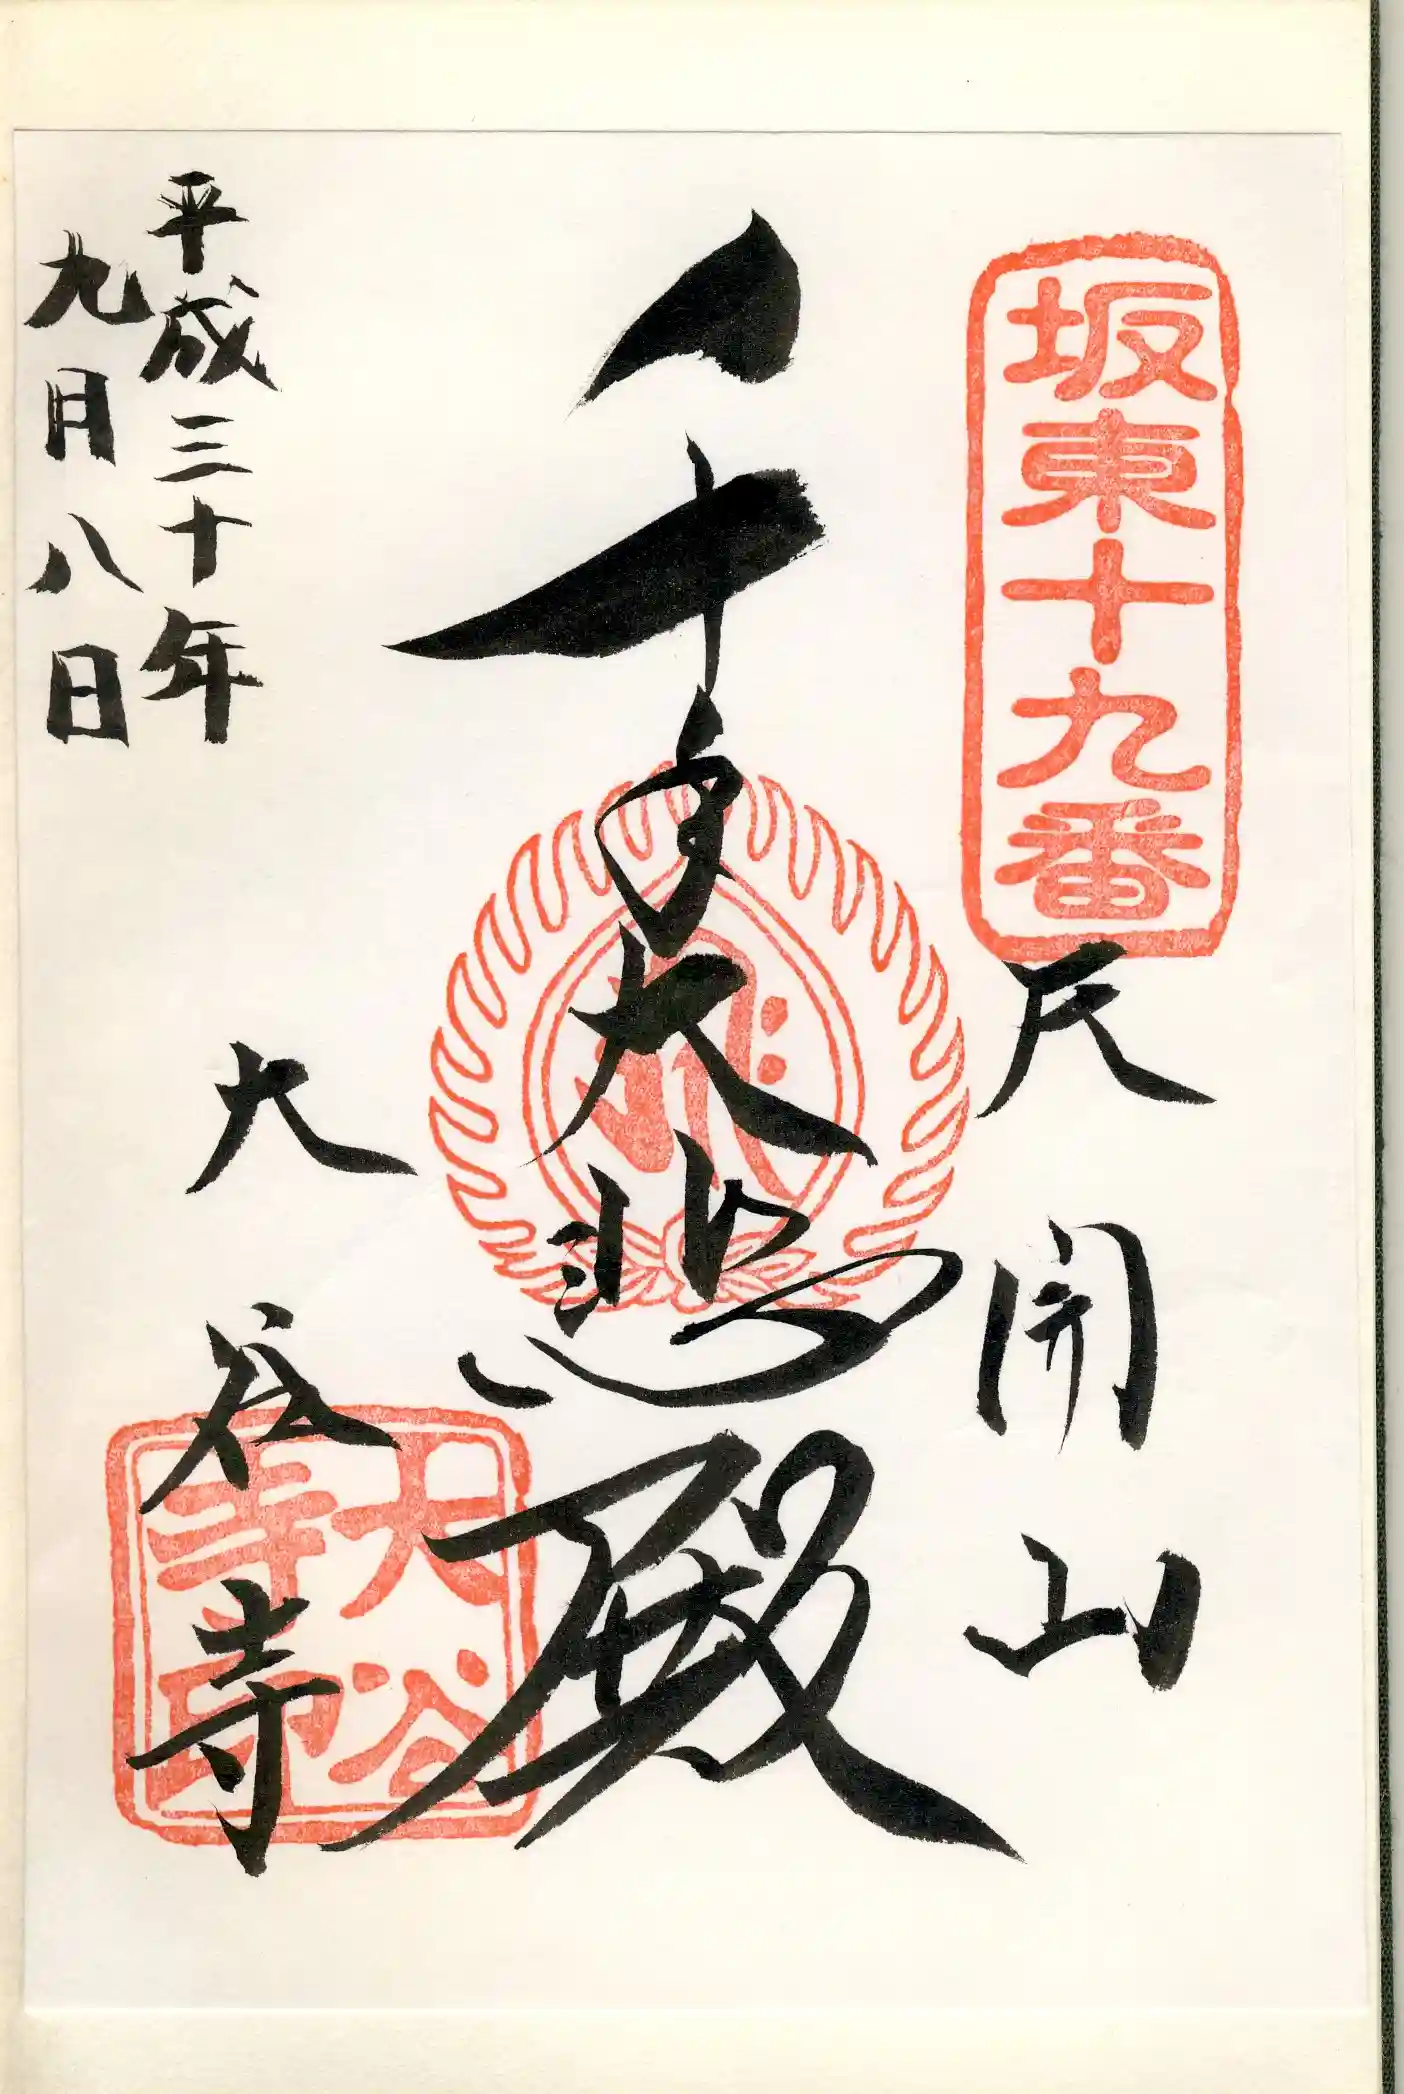 坂東十九番
天開山
千手大悲殿
大谷寺
大谷寺印
平成三十年
九月八日